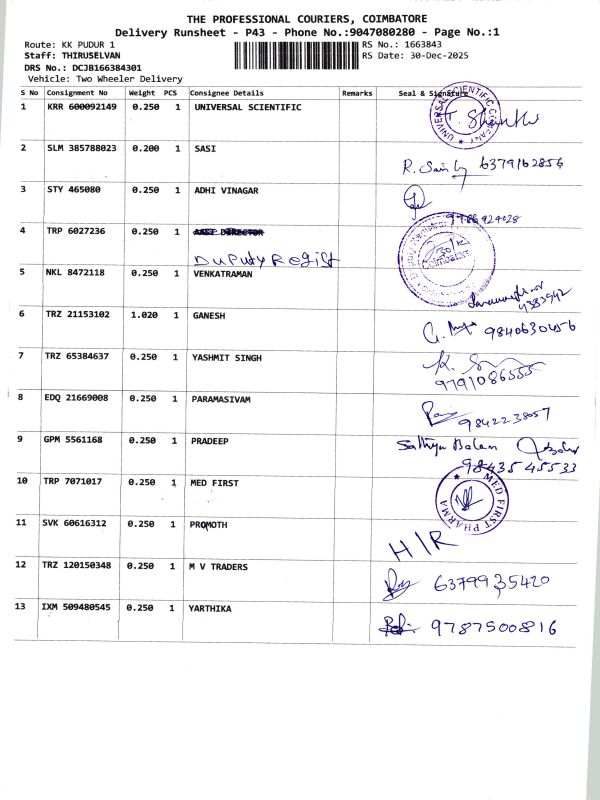 THE PROFESSIONAL COURIERS, COIMBATORE
Delivery Runsheet - P43 - Phone No.:9047080280 - Page No.:1
Route: KK PUDUR 1
Staff: THIRUSELVAN
DRS No.: DCJB166384301
Vehicle: Two Wheeler Delivery
RS No.: 1663843
RS Date: 30-Dec-2025
S No Consignment No Weight PCS Consignee Details Remarks Seal & Signature
1 KRR 600092149 0.250 1 UNIVERSAL SCIENTIFIC
UNIVERSAL SCIENTIFIC COMPANY
2 SLM 385788023 0.200 1 SASI
6379162856
3 STY 465080 0.250 1 ADHI VINAGAR
9786924028
4 TRP 6027236 0.250 1 ASST DIRECTOR
Duputy Regist
30/12
Coimbatore
5 NKL 8472118 0.250 1 VENKATRAMAN
6 TRZ 21153102 1.020 1 GANESH
9840630456
7 TRZ 65384637 0.250 1 YASHMIT SINGH
9791086555
8 EDQ 21669008 0.250 1 PARAMASIVAM
9842238057
9 GPM 5561168 0.250 1 PRADEEP
Sathya Balan
9843545533
10 TRP 7071017 0.250 1 MED FIRST
MED FIRST PHARMA
11 SVK 60616312 0.250 1 PROMOTH
H/R
12 TRZ 120150348 0.250 1 M V TRADERS
6379935420
13 IXM 509480545 0.250 1 YARTHIKA
9787500816